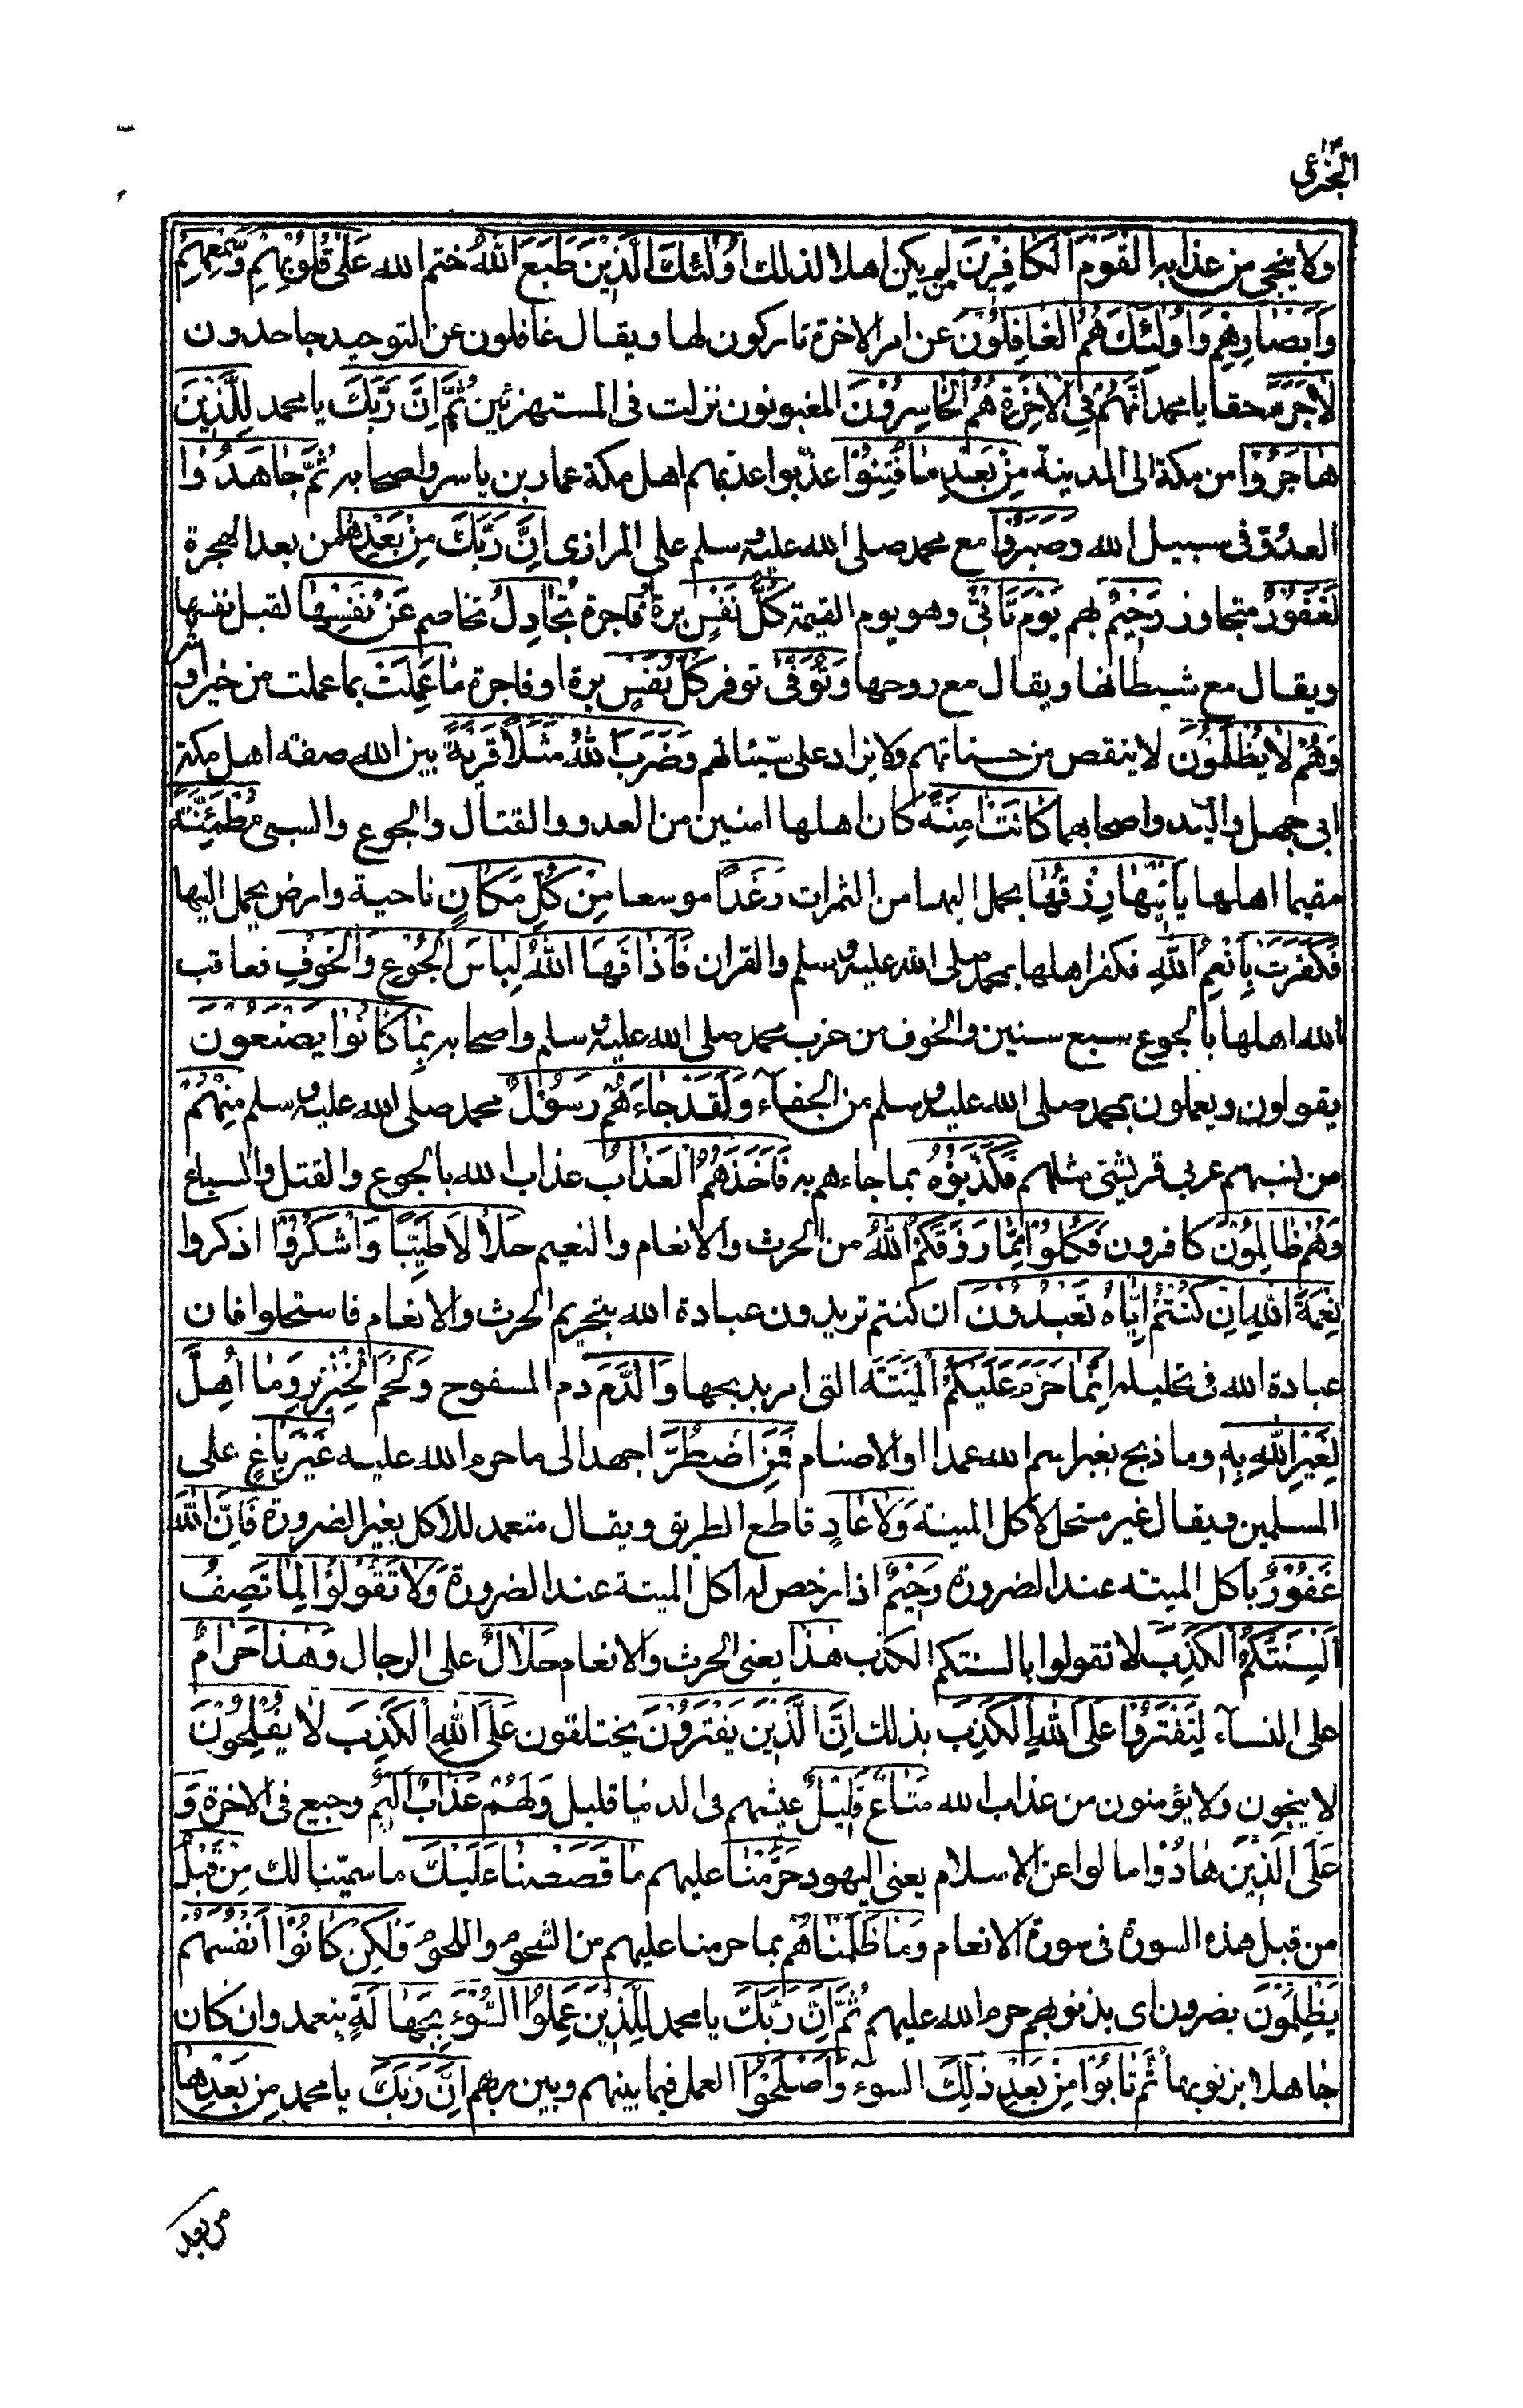 الجزء ١٤
ولا ينجى من عذابه الْقَوْمَ الْكَافِرِيْنَ لم يكن اهلا لذلك اُولٰئِكَ الَّذِيْنَ طَبَعَ اللهُ ختم الله عَلٰى قُلُوْبِهِمْ وَسَمْعِهِمْ
وَاَبْصَارِهِمْ وَاُولٰئِكَ هُمُ الْغَافِلُوْنَ عن امر الاخرة تاركون لها ويقال غافلون عن التوحيد جاحدون
لَاجَرَمَ حقا يا محمد اَنَّهُمْ فِي الْاٰخِرَةِ هُمُ الْخَاسِرُوْنَ المغبونون نزلت فى المستهزئين ثُمَّ اِنَّ رَبَّكَ يا محمد لِلَّذِيْنَ
هَاجَرُوْا من مكة الى المدينة مِنْ بَعْدِ مَا فُتِنُوْا عذبوا عذبهم اهل مكة عمار بن ياسر واصحابه ثُمَّ جَاهَدُوْا
العدو فى سبيل الله وَصَبَرُوْا مع محمد صلى الله عليه وسلم على المرازى اِنَّ رَبَّكَ مِنْ بَعْدِهَا من بعد الهجرة
لَغَفُوْرٌ متجاوز رَحِيْمٌ بهم يَوْمَ تَاْتِىْ وهو يوم القيمة كُلُّ نَفْسٍ برة او فاجرة تُجَادِلُ تخاصم عَنْ نَفْسِهَا لقبل نفسها
ويقال مع شيطانها ويقال مع روحها وَتُوَفّٰى توفر كُلُّ نَفْسٍ برة او فاجرة مَا عَمِلَتْ بما عملت من خير او شر
وَهُمْ لَا يُظْلَمُوْنَ لا ينقص من حسناتهم ولا يزاد على سيئاتهم وَضَرَبَ اللهُ مَثَلًا قَرْيَةً بين الله صفة اهل مكة
ابى جهل والوليد واصحابهما كَانَتْ اٰمِنَةً كان اهلها امنين من العدو والقتال والجوع والسبى مُطْمَئِنَّةً
مقيما اهلها يَاْتِيْهَا رِزْقُهَا يحمل اليها من الثمرات رَغَدًا موسعا مِنْ كُلِّ مَكَانٍ ناحية وارض يحمل اليها
فَكَفَرَتْ بِاَنْعُمِ اللهِ فكفر اهلها بمحمد صلى الله عليه وسلم والقران فَاَذَاقَهَا اللهُ لِبَاسَ الْجُوْعِ وَالْخَوْفِ فعاقب
الله اهلها بالجوع سبع سنين والخوف من حرب محمد صلى الله عليه وسلم واصحابه بِمَا كَانُوْا يَصْنَعُوْنَ
يقولون ويعملون بمحمد صلى الله عليه وسلم من الجفاء وَلَقَدْ جَاءَهُمْ رَسُوْلٌ محمد صلى الله عليه وسلم مِنْهُمْ
من نسبهم عربى قريشى مثلهم فَكَذَّبُوْهُ بما جاءهم به فَاَخَذَهُمُ الْعَذَابُ عذاب الله بالجوع والقتل والسباع
وَهُمْ ظَالِمُوْنَ كافرون فَكُلُوْا مِمَّا رَزَقَكُمُ اللهُ من الحرث والانعام والنعيم حَلَالًا طَيِّبًا وَاشْكُرُوْا اذكروا
نِعْمَةَ اللهِ اِنْ كُنْتُمْ اِيَّاهُ تَعْبُدُوْنَ ان كنتم تريدون عبادة الله بتحريم الحرث والانعام فاستحلوا فان
عبادة الله فى تحليله اِنَّمَا حَرَّمَ عَلَيْكُمُ الْمَيْتَةَ التى امر بذبحها وَالدَّمَ دم المسفوح وَلَحْمَ الْخِنْزِيْرِ وَمَا اُهِلَّ
لِغَيْرِ اللهِ بِهٖ وما ذبح بغير اسم الله عمدا او الاصنام فَمَنِ اضْطُرَّ اجهد الى ما حرم الله عليه غَيْرَ بَاغٍ على
المسلمين ويقال غير مستحل لاكل الميتة وَلَا عَادٍ قاطع الطريق ويقال متعمد للاكل بغير الضرورة فَاِنَّ اللهَ
غَفُوْرٌ باكل الميته عند الضرورة رَحِيْمٌ اذا رخص له اكل الميتة عند الضرورة وَلَا تَقُوْلُوْا لِمَا تَصِفُ
اَلْسِنَتُكُمُ الْكَذِبَ لا تقولوا بالسنتكم الكذب هٰذَا يعنى الحرث والانعام حَلَالٌ على الرجال وَهٰذَا حَرَامٌ
على النساء لِتَفْتَرُوْا عَلَى اللهِ الْكَذِبَ بذلك اِنَّ الَّذِيْنَ يَفْتَرُوْنَ يختلقون عَلَى اللهِ الْكَذِبَ لَا يُفْلِحُوْنَ
لا ينجون ولا يؤمنون من عذاب الله مَتَاعٌ قَلِيْلٌ عيشهم فى الدنيا قليل وَلَهُمْ عَذَابٌ اَلِيْمٌ وجيع فى الاخرة وَ
عَلَى الَّذِيْنَ هَادُوْا مالوا عن الاسلام يعنى اليهود حَرَّمْنَا عليهم مَا قَصَصْنَا عَلَيْكَ ما سمينا لك مِنْ قَبْلُ
من قبل هذه السورة فى سورة الانعام وَمَا ظَلَمْنَاهُمْ بما حرمنا عليهم من الشحوم واللحوم وَلٰكِنْ كَانُوْا اَنْفُسَهُمْ
يَظْلِمُوْنَ يضرون اى بذنوبهم حرم الله عليهم ثُمَّ اِنَّ رَبَّكَ يا محمد لِلَّذِيْنَ عَمِلُوا السُّوْءَ بِجَهَالَةٍ بتعمد وان كان
جاهلا بذنوبها ثُمَّ تَابُوْا مِنْ بَعْدِ ذٰلِكَ السوء وَاَصْلَحُوْا العمل فيما بينهم وبين ربهم اِنَّ رَبَّكَ يا محمد مِنْ بَعْدِهَا
من بعد